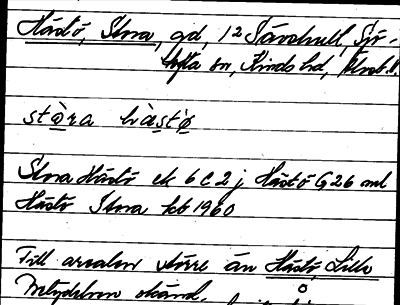 Hästö, Stora, gd, 12 Sävshult, Sjö-
hefta sn, Kinds hd, Älvsb. l.
stò̱ra hàstò̱
Stora Hästö ek 6 C 2 j Hästö G26 ml
Hästö Stora kb 1960
Till arealen större än Hästö Lilla
Betydelsen okänd.